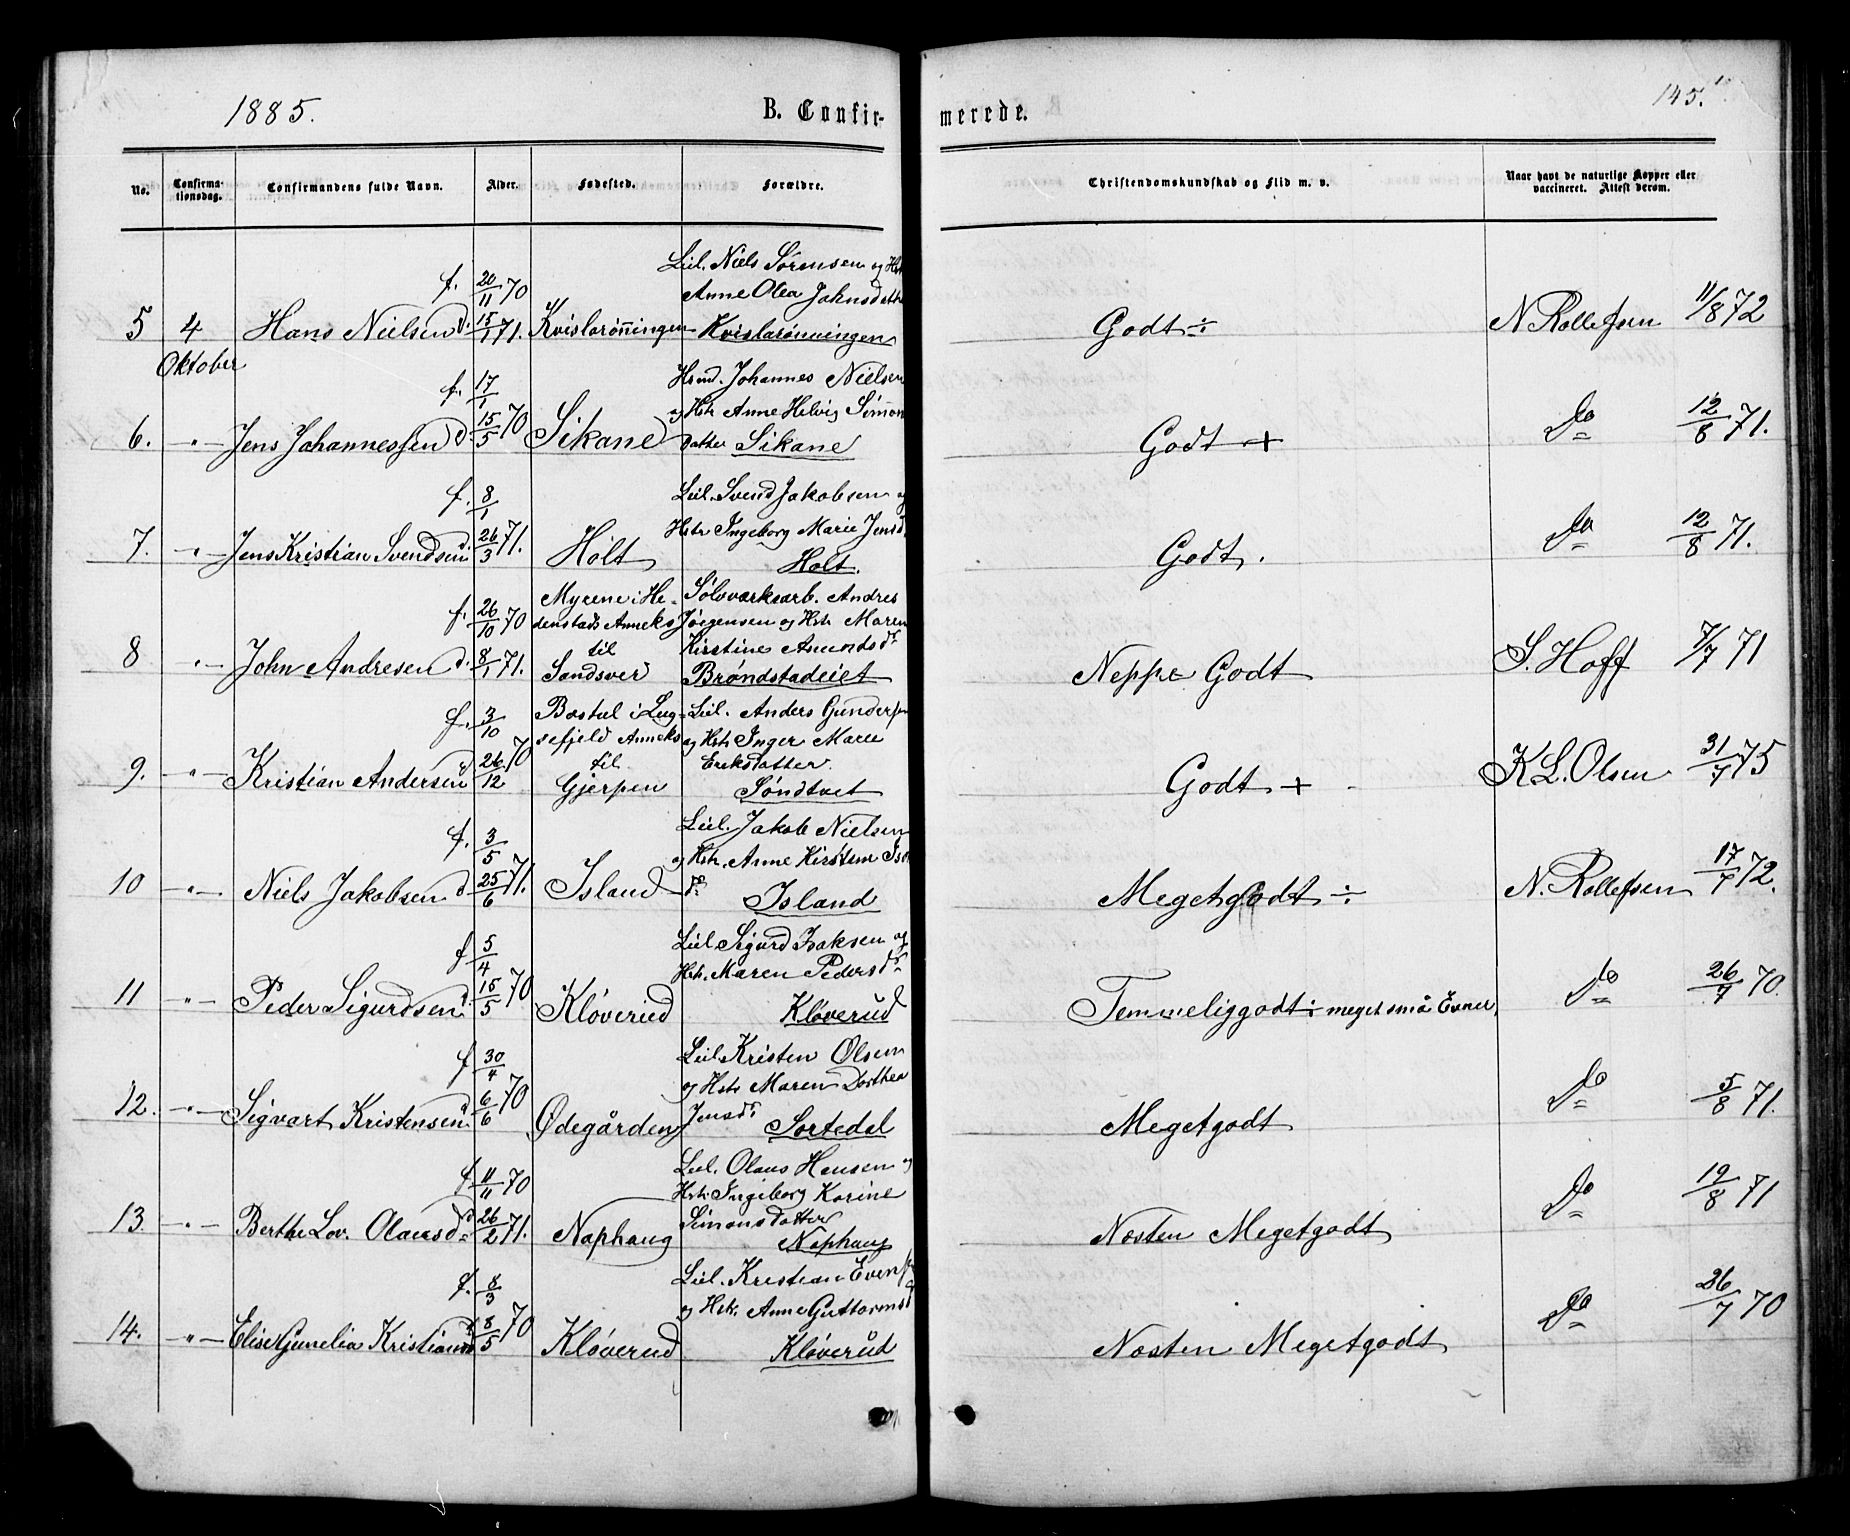 1885.
B. Confir-
merede.
145.
No.
Confirma-
tionsdag.
Confirmandens fulde Navn.
Alder.
Fødested.
Forældre.
Christendomskundskab og Flid m. v.
Naar havt de naturlige Kopper eller
vaccineret. Attest derom.
Leil. Niels Sørensen og Hst
f. 20/11 70
Anne Olea Johnsdatter
5 4 Hans Nielsen d. 15/1 71. Kvislarønningen Kvislarønningen Godt ÷ N Rollefsen 11/8 72
Oktober
Hsmd. Johannes Nielsen
f. 17/1
og Hstr Anne Helvig Simon
6. -"- Jens Johannessen d. 15/5 70 Sikane datter Sikane Godt + Do 12/8 71.
f. 8/1 Leil. Svend Jakobsen og
Hstr Ingeborg Marie Jensd.
7. -"- Jens Kristian Svendsen d. 26/3 71. Holt Holt. Godt. Do 12/8 71.
Myrene i He- Sølvværksarb. Andres
f. 26/10 70 denstads Anneks Jørgensen og Hstr Maren
til Kirstine Amundsdr
8 -"- John Andresen d. 8/1 71. Sandsver Brøndstadeiet Neppe Godt S. Hoff 7/7 71
f. 3/10 Bøstul i Lug- Leil. Anders Gundersen
sefjeld Anneks og Hstr Inger Marie
til Eriksdatter.
9. -"- Kristian Andersen d 26/12 70 Gjerpen Søndtvet Godt + K L. Olsen 31/7 75
f. 3/5 Leil. Jakob Nielsen
og Hstr. Anne Kirsten
10 -"- Niels Jakobsen d 25/6 71. Island dr. Island Megetgodt ÷ N. Rollefsen 17/7 72.
f 5/4 Leil Sigurd Isaksen og
Hstr. Maren Pedersdr
11 -"- Peder Sigurdsen d. 15/5 70 Kløverud Kløverud Temmeliggodt ÷ meget små Evner. Do 26/7 70.
f 30/4 Leil. Kristen Olsen
og Hstr Maren Dorthea
12. -"- Sigvart Kristensen d 6/6 70 Ødegården Jensdr Sortedal Megetgodt Do 5/8 71.
f 11/11 70 Leil. Olaus Hansen og
Hstr. Ingeborg Karine
Simonsdatter
13. -"- Berthe Lov. Olausdr d 26/2 71. Naphaug Naphaug Næsten Megetgodt Do 19/8 71
f. 8/3 Leil. Kristian Evensen
og Hstr. Anne Guttormsd
14. -"- Elise Gunelia Kristiansd d 8/5 70 Kløverud Kløverud Næsten Megetgodt Do 26/7 70